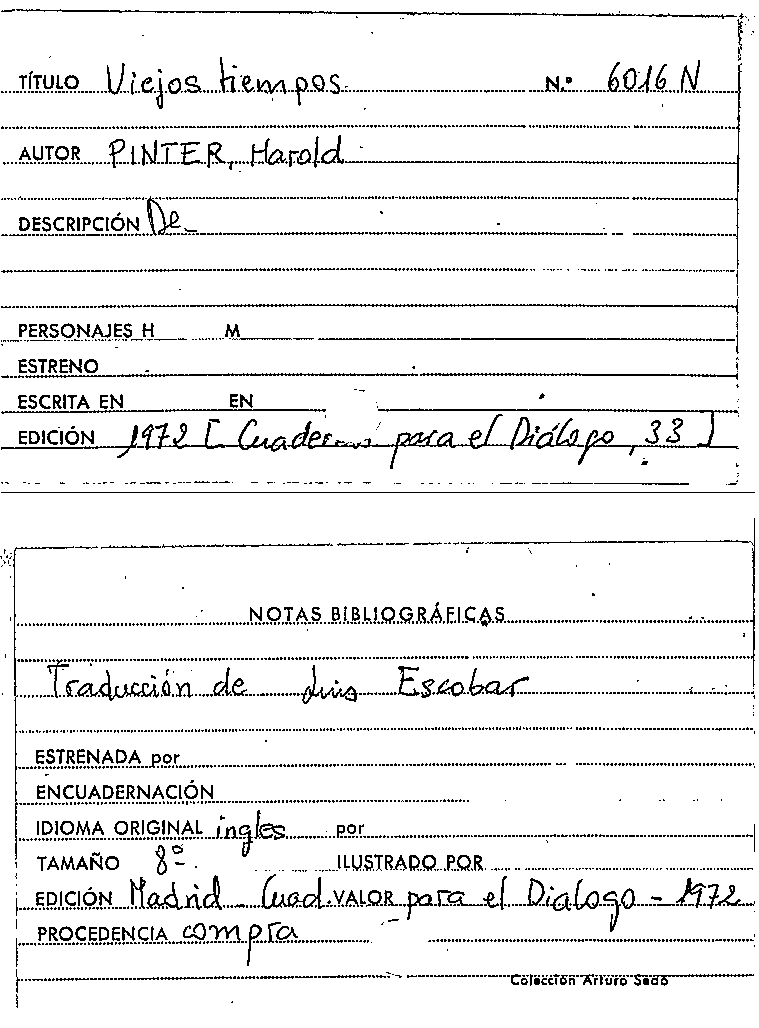 TÍTULO Viejos tiempos N.º 6016 N
AUTOR PINTER, Harold
DESCRIPCIÓN De
PERSONAJES H M
ESTRENO
ESCRITA EN EN
EDICIÓN 1972 [Cuadernos para el Diálogo, 33]
NOTAS BIBLIOGRÁFICAS
Traducción de Luis Escobar
ESTRENADA por
ENCUADERNACIÓN
IDIOMA ORIGINAL ingles por
TAMAÑO 8º ILUSTRADO POR
EDICIÓN Madrid - Cuad. VALOR para el Dialogo - 1972
PROCEDENCIA compra
Colección Arturo Sedó